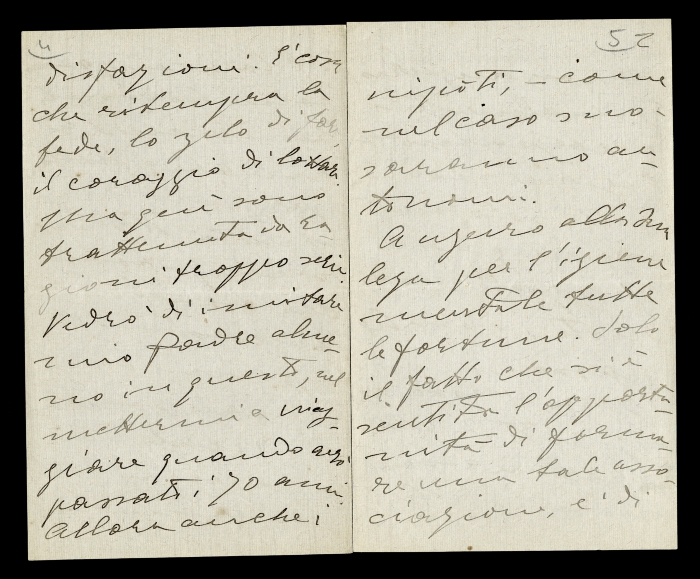 4
disfazioni. E' cosa
che ritempra la
fede, lo zelo di far,
il coraggio di lottare.
Ma qui sono
trattenuta da ra-
gioni troppo serie
Vedrò di imitare
mio Padre alme-
no in questo, nel
mettermi a viag-
giare quando avrò
passati i 70 anni.
Allora anche i
52
nipoti, – come
nel caso suo –
saranno au-
tonomi.
Auguro alla
lega per l'igiene
mentale tutte
le fortune. Solo
il fatto che si è
sentita l'opportu-
nità di forma-
re una tale asso-
ciazione, è di